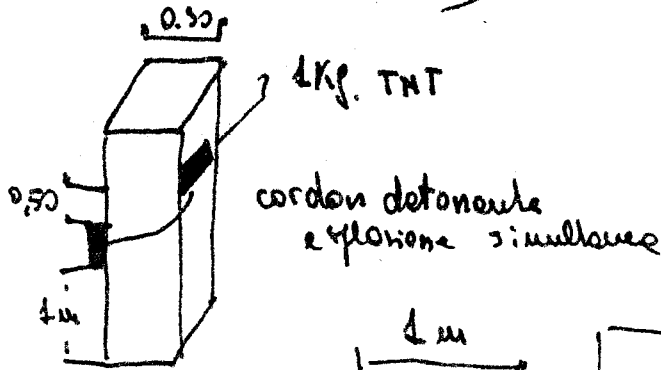 0.30
1Kg. TNT
0,50
cordon detonante
esplosione simultanea
1 m
1 m